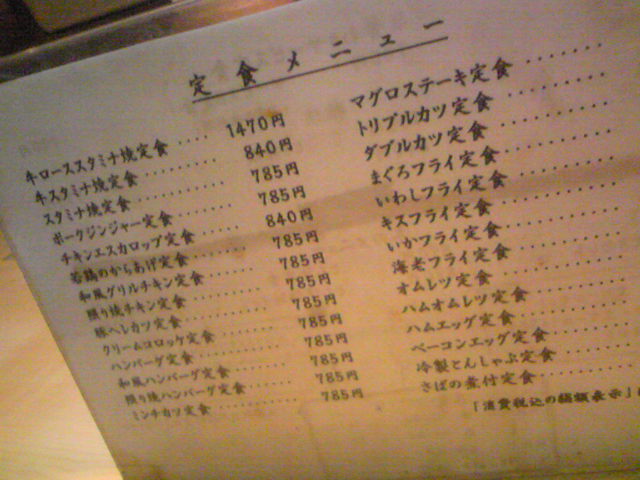 定食メニュー
牛ローススタミナ焼定食 ····· 1470円
牛スタミナ焼定食 ········· 840円
スタミナ焼定食 ·········· 785円
ポークジンジャー定食 ········ 785円
チキンエスカロップ定食 ······· 840円
若鶏のからあげ定食 ········· 785円
和風グリルチキン定食 ········ 785円
照り焼チキン定食 ·········· 785円
豚ヘレカツ定食 ··········· 785円
クリームコロッケ定食 ········ 785円
ハンバーグ定食 ··········· 785円
和風ハンバーグ定食 ········· 785円
照り焼ハンバーグ定食 ········ 785円
ミンチカツ定食 ··········· 785円
マグロステーキ定食 ········
トリプルカツ定食 ·········
ダブルカツ定食 ··········
まぐろフライ定食 ·········
いわしフライ定食 ·········
キスフライ定食 ··········
いかフライ定食 ··········
海老フライ定食 ··········
オムレツ定食 ···········
ハムオムレツ定食 ·········
ハムエッグ定食 ··········
ベーコンエッグ定食 ········
冷製とんしゃぶ定食 ········
さばの煮付定食 ··········
「消費税込の総額表示」